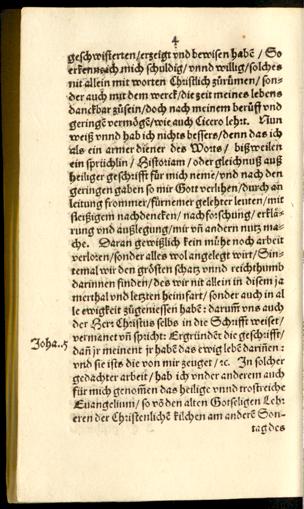 4
geschwisterten/erzeigt vnd bewisen habẽ/ So
erkenn ich mich schuldig/ vnnd willig/ solches
nit allein mit worten Christlich zůrůmen/ son-
der auch mit dem werck/ die zeit meines lebens
danckbar zůsein/ doch nach meinem berůff vnd
geringẽ vermögẽ/ wie auch Cicero lehrt. Nun
weiß vnnd hab ich nichts bessers/ denn das ich
als ein armer diener des Worts/ bißweilen
ein sprüchlin/ Historiam/ oder gleichnuß auß
heiliger geschrifft für mich neme/ vnd nach den
geringen gaben so mir Gott verlihen/ durch an
leitung frommer/ fürnemer gelehrter leuten/ mit
fleißigem nachdencken/ nachforschung/ erklä-
rung vnd außlegung/ mir vñ andern nutz ma-
che. Daran gewißlich kein mühe noch arbeit
verloren/ sonder alles wol angelegt wirt/ Sin-
temal wir den grösten schatz vnnd reichthumb
darinnen finden/ des wir nit allein in disem ja
merthal vnd letzten heimfart/ sonder auch in al
le ewigkeit zůgeniessen habẽ: darum̃ vns auch
der Herr Christus selbs in die Schrifft weiset/
vermanet vñ spricht: Ergründet die geschrifft/
Joha..5
dañ jr meinent jr habẽ das ẽwig lebẽ dariñen:
vnd sie ists die von mir zeuget/ ꝛc. In solcher
gedachter arbeit/ hab ich vnder anderem auch
für mich genom̃en das heilige vnnd trostreiche
Euangelium/ so võ den alten Gotseligen Leh-
reren der Christenlichẽ kilchen am anderẽ Son-
tag des